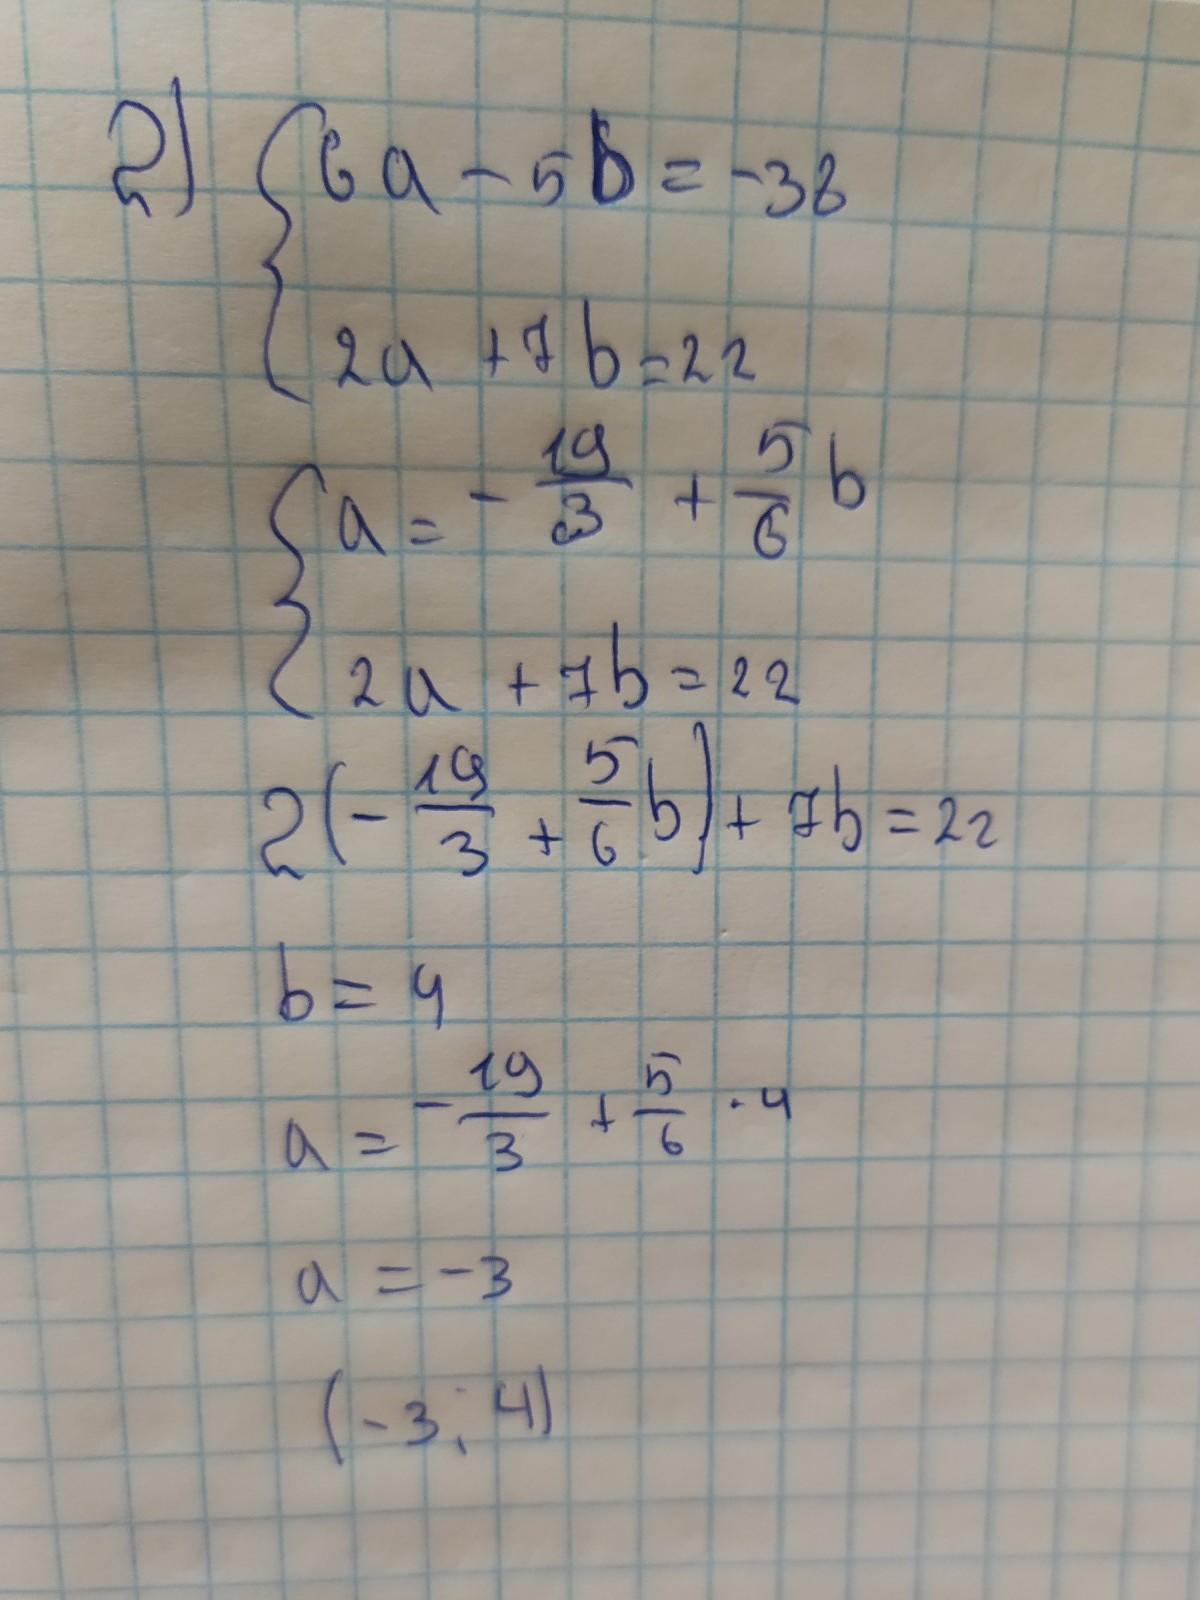 2) { 6a - 5b = -38
2a + 7b = 22
{ a = - 19/3 + 5/6 b
2a + 7b = 22
2(- 19/3 + 5/6 b) + 7b = 22
b = 4
a = - 19/3 + 5/6 · 4
a = -3
(-3; 4)